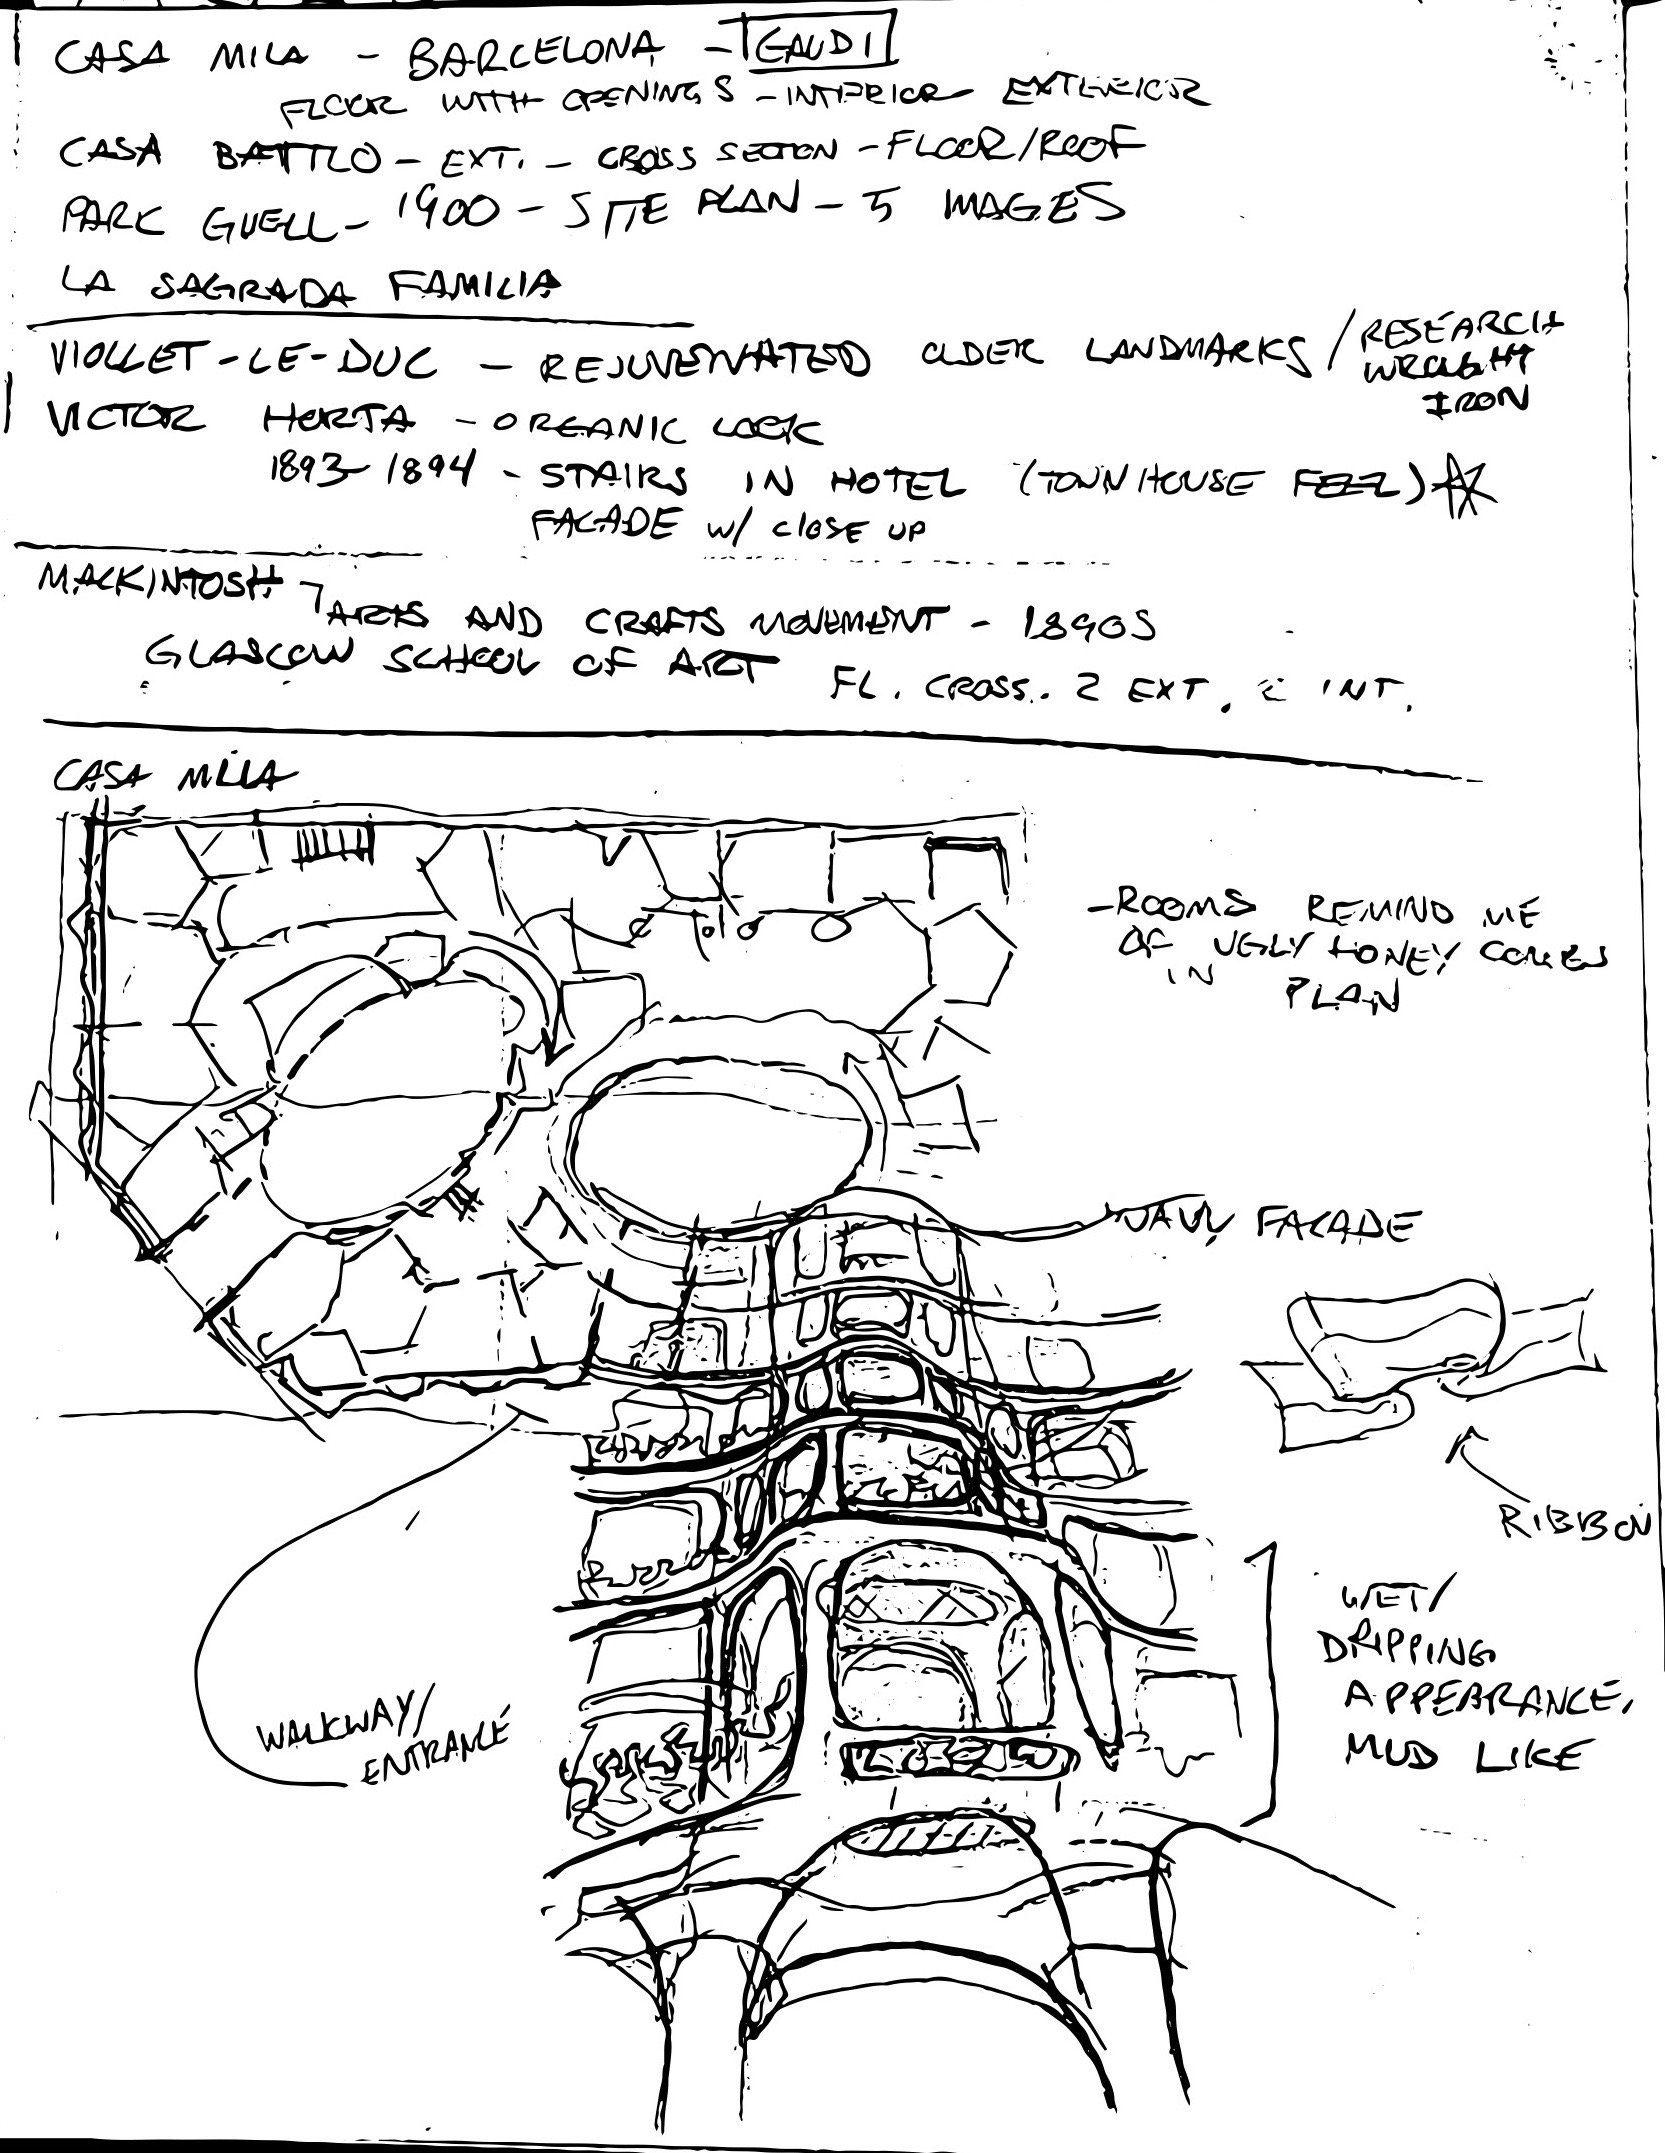 CASA MILA - BARCELONA - GAUDI
FLOOR WITH OPENINGS - INTERIOR EXTERIOR
CASA BATTLO - EXT. - CROSS SECTION - FLOOR/ROOF
PARK GUELL - 1900 - SITE PLAN - 5 IMAGES
LA SAGRADA FAMILIA
VIOLLET-LE-DUC - REJUVENATED OLDER LANDMARKS / RESEARCH
WROUGHT
IRON
VICTOR HORTA - ORGANIC LOOK
1893-1894 - STAIRS IN HOTEL (TOWNHOUSE FEEL)
FACADE W/ CLOSE UP
MACKINTOSH
ARTS AND CRAFTS MOVEMENT - 1890S
GLASCOW SCHOOL OF ART FL. CROSS. 2 EXT. 2 INT.
CASA MILA
- ROOMS REMIND ME
OF UGLY HONEY COMBS
IN PLAN
WAVY FACADE
RIBBON
WET/
DRIPPING
APPEARANCE,
MUD LIKE
WALKWAY/
ENTRANCE